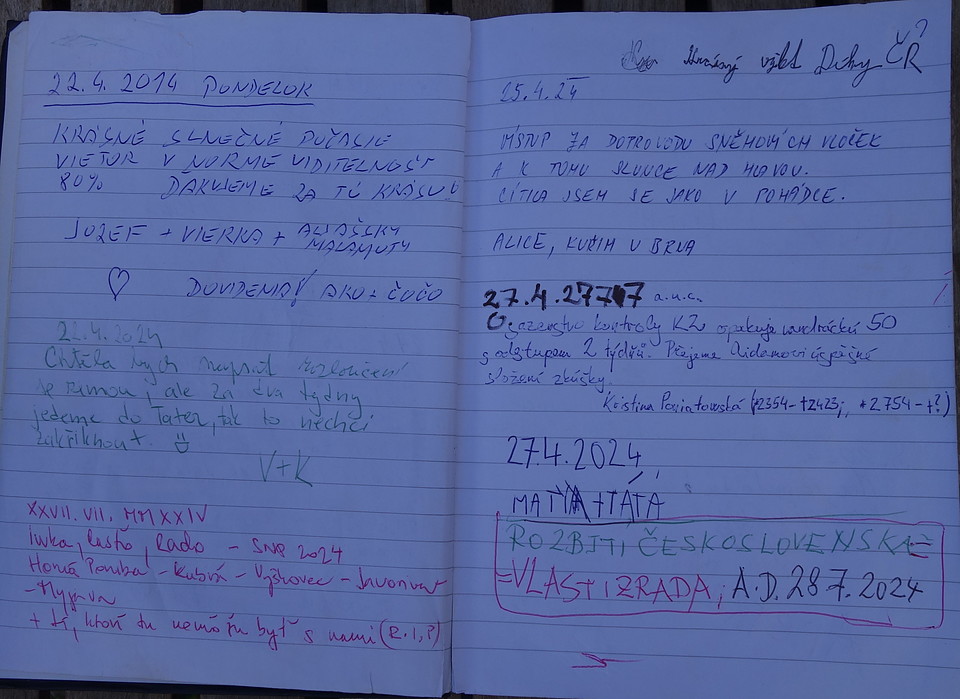 22.4.2014 PONDELOK
KRÁSNÉ SLNEČNÉ POČASIE
VIETOR V NORME VIDITEĽNOSŤ
80% ĎAKUJEME ZA TÚ KRÁSU!
JOZEF + VIERKA + ALJAŠSKÝ
MALAMUTY
DOVIDENIA! AKO + ČOČO
22.4.2024
Chtěla bych napsat rozloučení
se zimou, ale za dva týdny
jedeme do Tater, tak to nechci
zakřiknout.
V+K
XXVII. VII. MMXXIV
Iwka, Rasťo, Rado - SNP 2024
Horná Poruba - - Vyškovec -
- Myjava
+ tí, ktorí tu nemôžu byť s nami (R.I.P)
Duhy ČR
25.4.24
MÍSTUP ZA DOTROVODU SNĚHOVÝCH VLOČEK
A K TOMU SLUNCE NAD HLAVOU.
CÍTILA JSEM SE JAKO V POHÁDCE.
ALICE, KUŘIM U BRNA
27.4.27717 a.u.c.
kontroly KZ opakuje 50
s odstupem 2 týdnů. Přejeme úspěšné
složení zkúšky.
Kristina (*2354-†2423; *2754-†?)
27.4.2024
+TÁTA
ROZBITÍ ČESKOSLOVENSKA=
=VLASTIZRADA, A.D. 28.7.2024